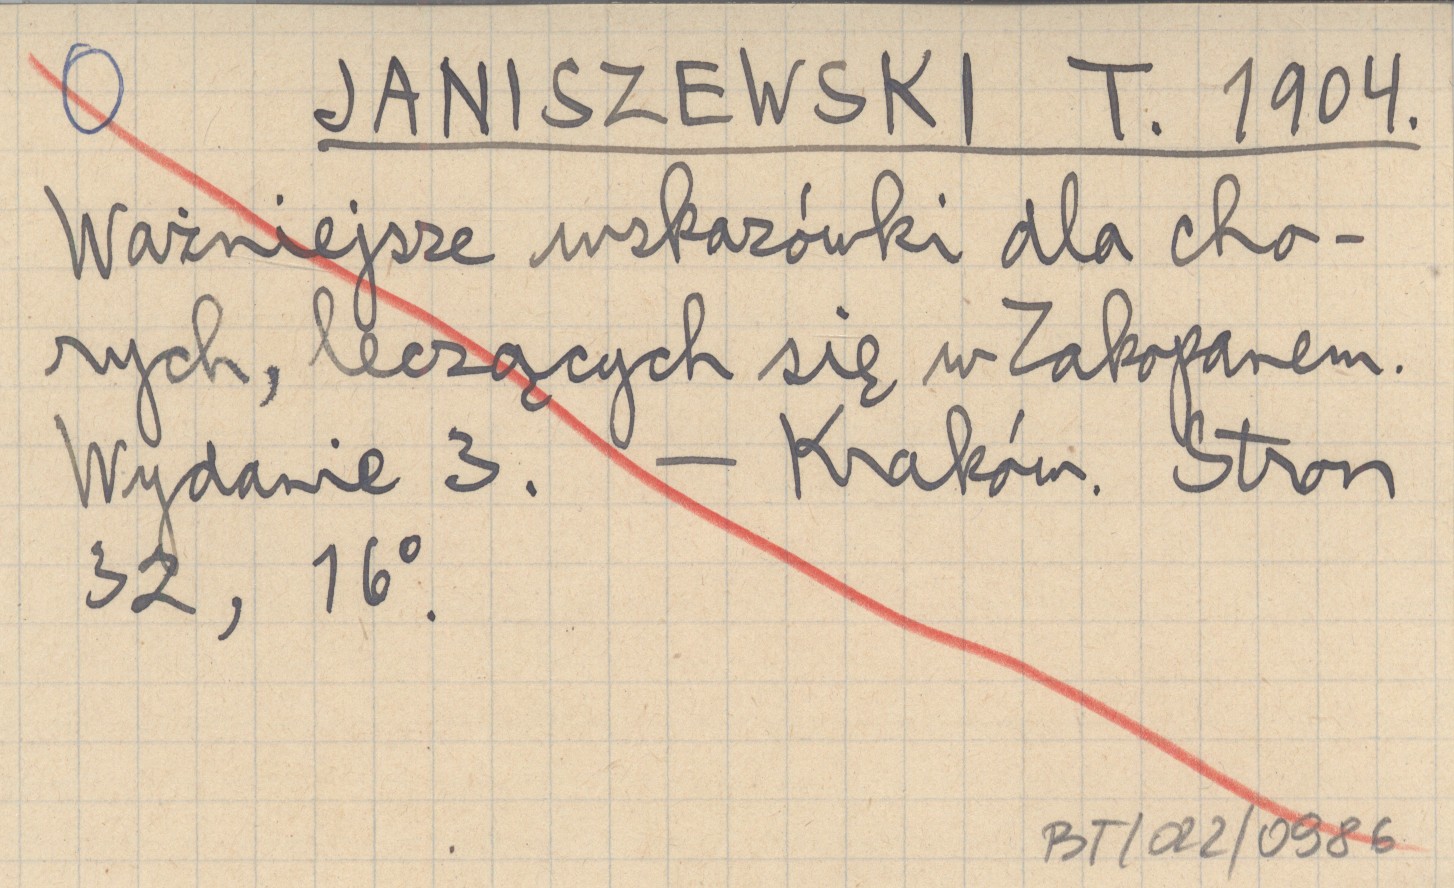 JANISZEWSKI T. 1904.
Ważniejsze wskazówki dla cho-
rych, leczących się w Zakopanem.
Wydanie 3. — Kraków. Stron
32, 16°.
BT/022/0986